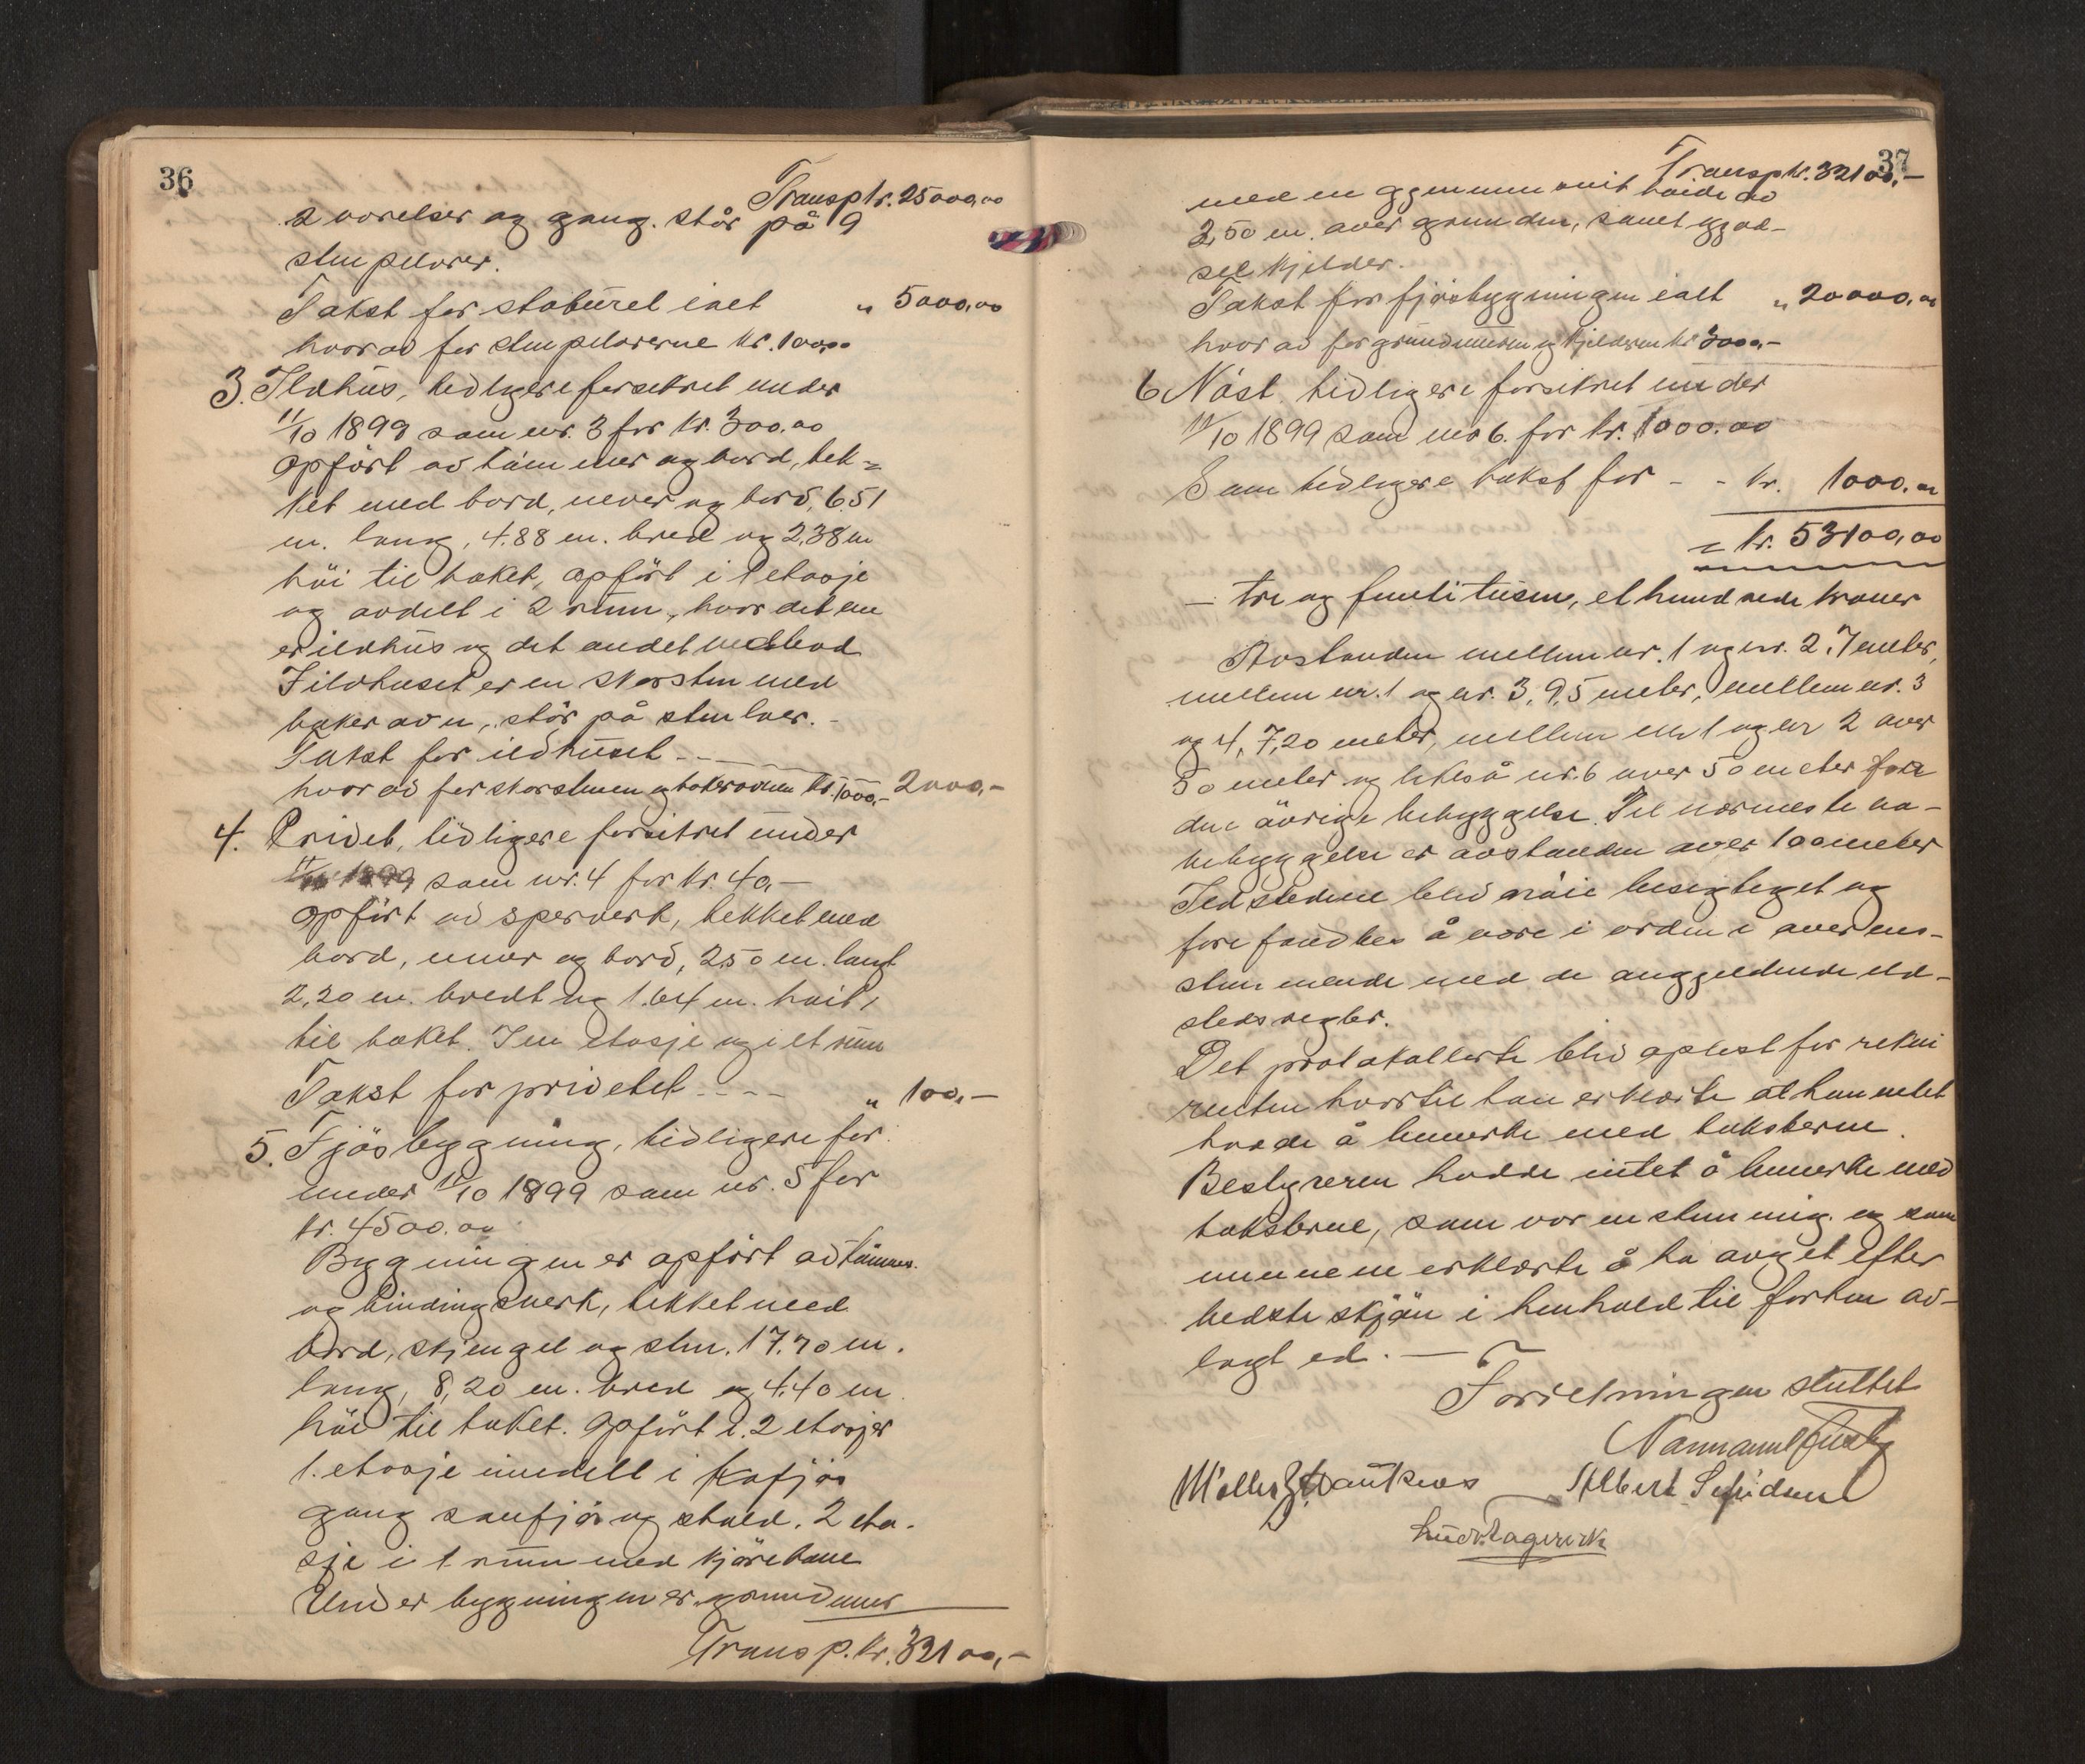 36
Transp kr. 25000,00
2 værelser og gang. står på 9
stenpelarer.
Takst for staburet ialt „ 5000,00
hvorav for stenpelarerne kr. 1000,00
3. Ildhus, tidligere forsikret under
11/10 1899 som nr. 3 for kr. 300.00
Opført av tømmer og bord, tek=
ket med bord, never og bord, 6.51
m. lang, 4.88 m. bred og 2,38 m
høi til taket, opført i 1 etasje
og avdelt i 2 rum, hvor det ene
er ildhus og det andet vedbod
I ildhuset er en skorsten med
bakerovn, står på stenloer.
Takst for ildhuset - - - -
hvorav for skorstenen og bakerovnen kr. 1000,- 2000,-
4. Privet, tidligere forsikret under
11/10 1899 som nr. 4 for kr. 40,-
Opført av sperverk, tekket med
bord, never og bord, 2,50 m. langt
2,20 m. bredt og 1.64 m. høit,
til taket. I en etasje og i et rum
Takst for privetet - - - - „ 100,-
5. Fjøsbygning, tidligere for.
under 11/10 1899 som nr. 5 for
kr. 4500.00
Bygningen er opført av tømmer
og bindingsverk, tekket med
bord, skjengel og sten. 17.70 m.
lang, 8,20 m. bred og 4,40 m
høi til taket. Opført i 2 etasjer
1. etasje inndelt i kufjøs
gang saufjøs og stald. 2 eta-
sje i 1 rum med kjørebane
Under bygningen er grundmur
Transp. kr. 32100,-
37
Transp kr. 32100,-
med en gjennemsnit høide av
2,50 m. over grunden, samt gjød-
sel kjelder.
Takst for fjøsbygningen ialt „ 20000,00
hvorav for grundmuren og kjelderen kr 3000,-
6 Nøst. tidligere forsikret under
11/10 1899 som nr 6. for kr. 1000.00
Som tidligere takst for - - kr. 1000.00
= kr. 53100,00
- tre og femti tusen, et hundrede kroner
Avstanden mellem nr. 1 og nr. 2, 7 meter,
mellem nr. 1 og nr. 3, 9,5 meter, mellem nr. 3
og 4, 7,20 meter, mellem nr 1 og nr 2 over
50 meter og likeså nr. 6 over 50 meter fra
den øvrige bebyggelse. Til nærmeste na-
bebyggelse er avstanden over 100 meter
Ildstedene blev nøie besigtiget og
forefandtes å være i orden i overens-
stemmende med de anggjeldende ild-
stedsregler.
Det protokollerte blev oplest for rekvi
renten hvortil han erklærte at han intet
hadde å bemerke med taksterne.
Bestyreren hadde intet å bemerke med
taksterne, som var enstemmig og som
mennene erklærte å ha avgit efter
bedste skjøn i henhold til fortin av-
lagt ed. -
Forretningen sluttet
Albert